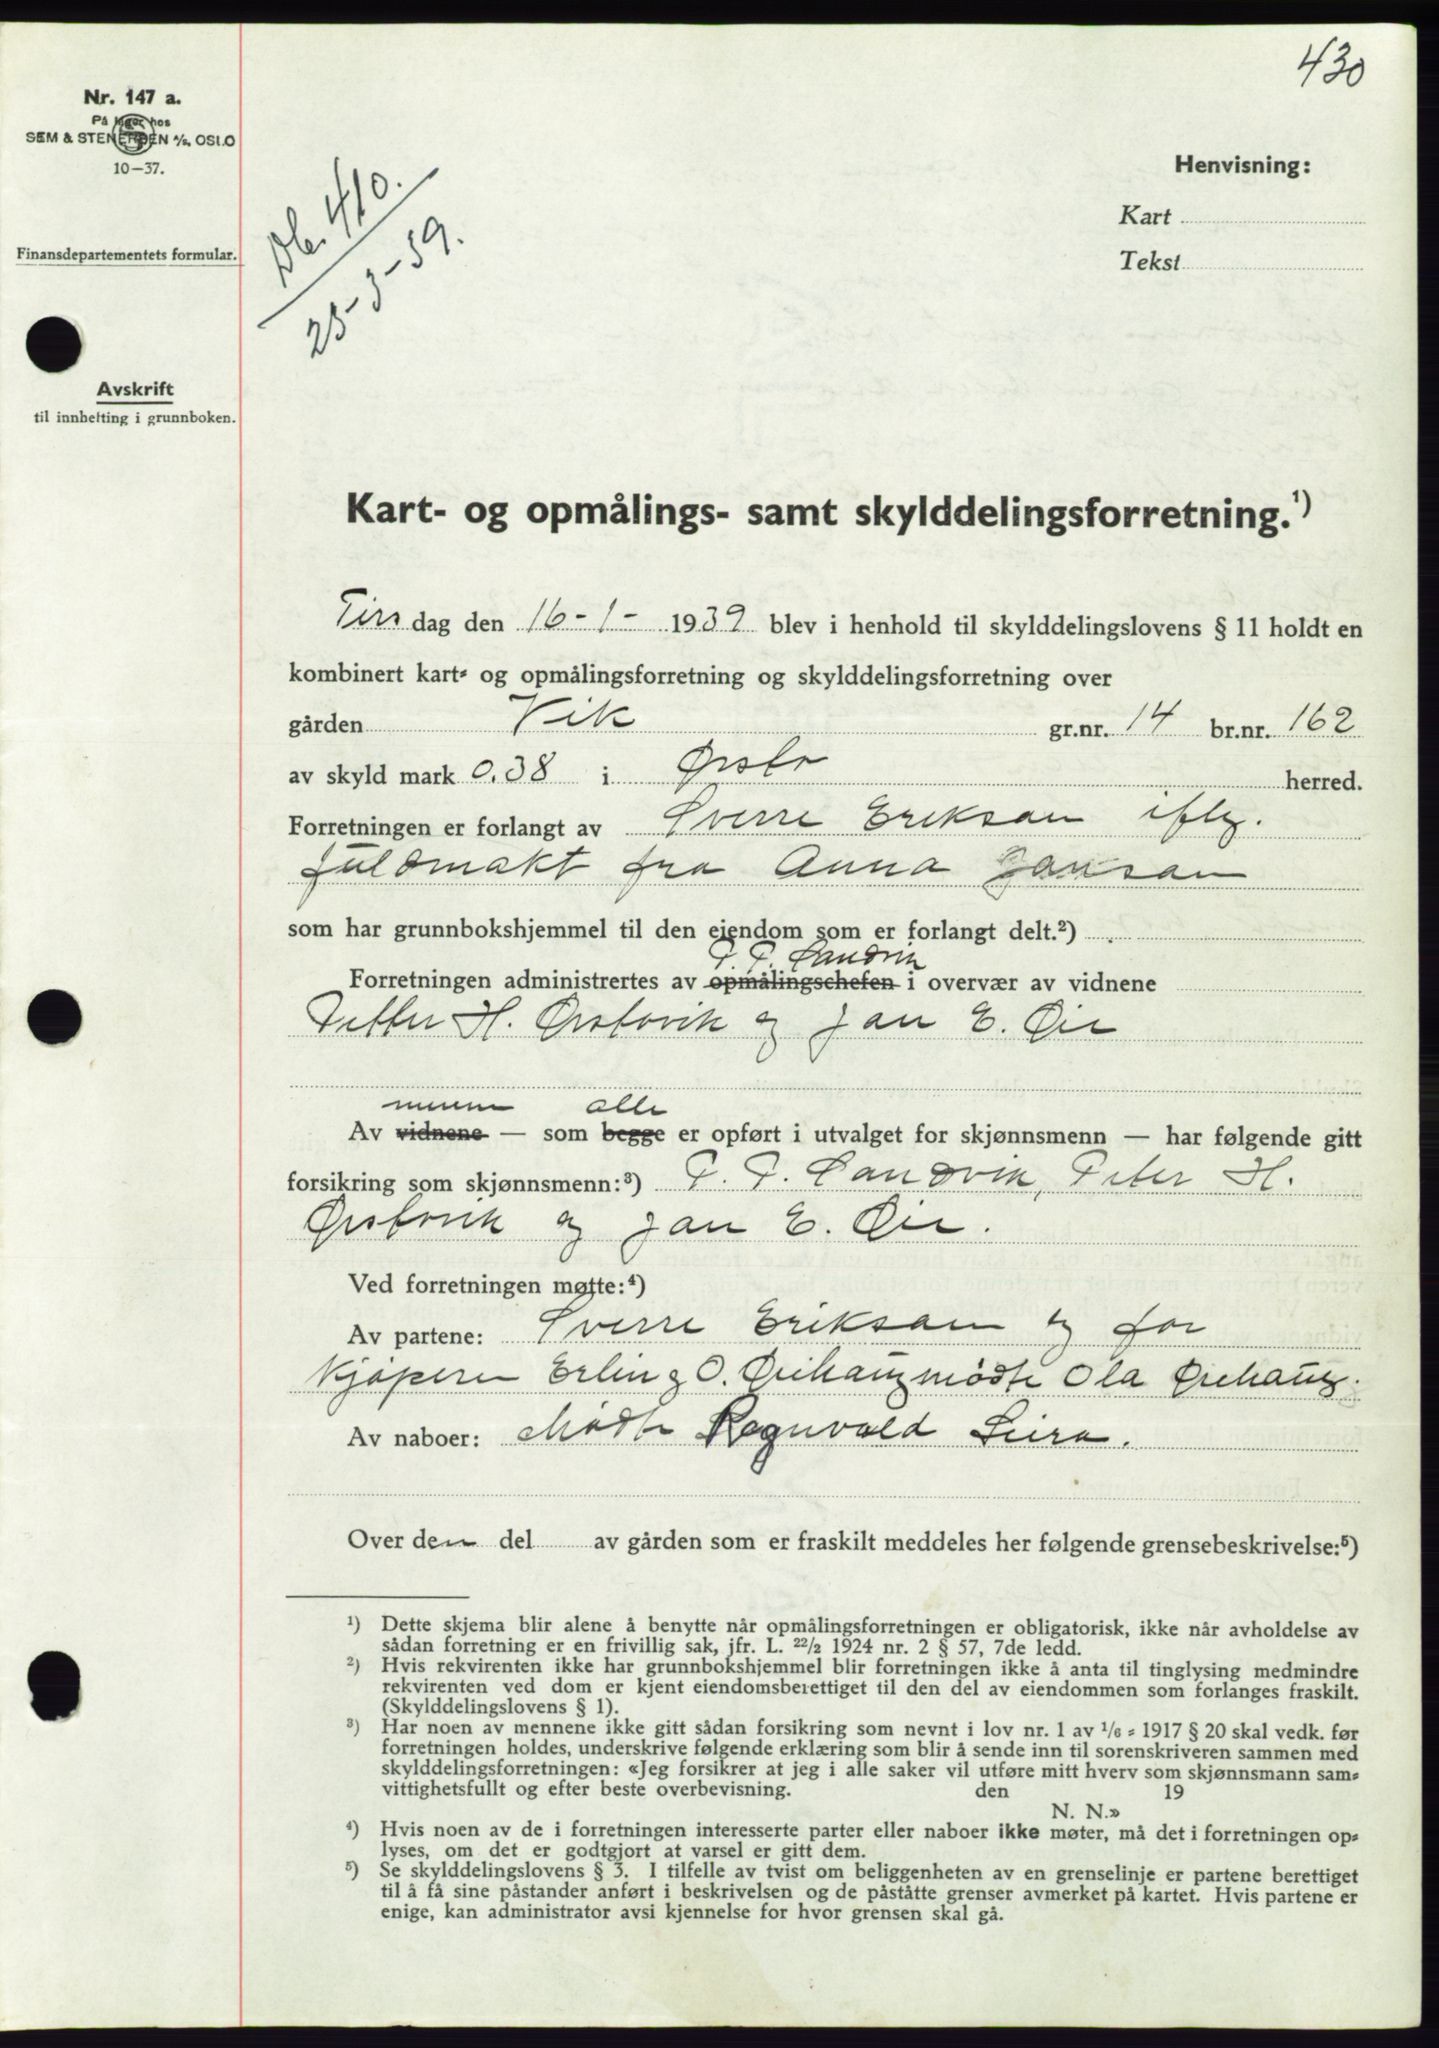 430
Nr. 147 a.
På lager hos
SEM & STENERSEN A/S, OSLO
10-37.
Finansdepartementets formular.
Dbl. 410.
25-3-39.
Henvisning:
Kart
Tekst
Avskrift
til innhefting i grunnboken.
Kart- og opmålings- samt skylddelingsforretning.¹)
Tirsdag den 16-1- 1939 blev i henhold til skylddelingslovens § 11 holdt en
kombinert kart- og opmålingsforretning og skylddelingsforretning over
gården Vik gr.nr. 14 br.nr. 162
av skyld mark 0.38 i Ørsta herred.
Forretningen er forlangt av Sverre Eriksen iflg.
fuldmakt fra Anna Jansen
som har grunnbokshjemmel til den eiendom som er forlangt delt.²)
P. P. Sandvik
Forretningen administrertes av opmålingschefen i overvær av vidnene
Petter H. Ørstavik og Jan E. Øie
mennene alle
Av vidnene — som begge er opført i utvalget for skjønnsmenn — har følgende gitt
forsikring som skjønnsmenn:³) P. P. Sandvik, Peter H.
Ørstavik og Jan E. Øie.
Ved forretningen møtte:⁴)
Av partene: Sverre Eriksen og for
kjøperen Erling O. Øiehaug mødte Ola Øiehaug.
Av naboer: Mødte Ragnvald Leira.
Over den del av gården som er fraskilt meddeles her følgende grensebeskrivelse:⁵)
¹) Dette skjema blir alene å benytte når opmålingsforretningen er obligatorisk, ikke når avholdelse av
sådan forretning er en frivillig sak, jfr. L. 22/2 1924 nr. 2 § 57, 7de ledd.
²) Hvis rekvirenten ikke har grunnbokshjemmel blir forretningen ikke å anta til tinglysing medmindre
rekvirenten ved dom er kjent eiendomsberettiget til den del av eiendommen som forlanges fraskilt.
(Skylddelingslovens § 1).
³) Har noen av mennene ikke gitt sådan forsikring som nevnt i lov nr. 1 av 1/6 - 1917 § 20 skal vedk. før
forretningen holdes, underskrive følgende erklæring som blir å sende inn til sorenskriveren sammen med
skylddelingsforretningen: «Jeg forsikrer at jeg i alle saker vil utføre mitt hverv som skjønnsmann sam-
vittighetsfullt og efter beste overbevisning. den 19
N. N.»
⁴) Hvis noen av de i forretningen interesserte parter eller naboer ikke møter, må det i forretningen op-
lyses, om det er godtgjort at varsel er gitt dem.
⁵) Se skylddelingslovens § 3. I tilfelle av tvist om beliggenheten av en grenselinje er partene berettiget
til å få sine påstander anført i beskrivelsen og de påståtte grenser avmerket på kartet. Hvis partene er
enige, kan administrator avsi kjennelse for hvor grensen skal gå.